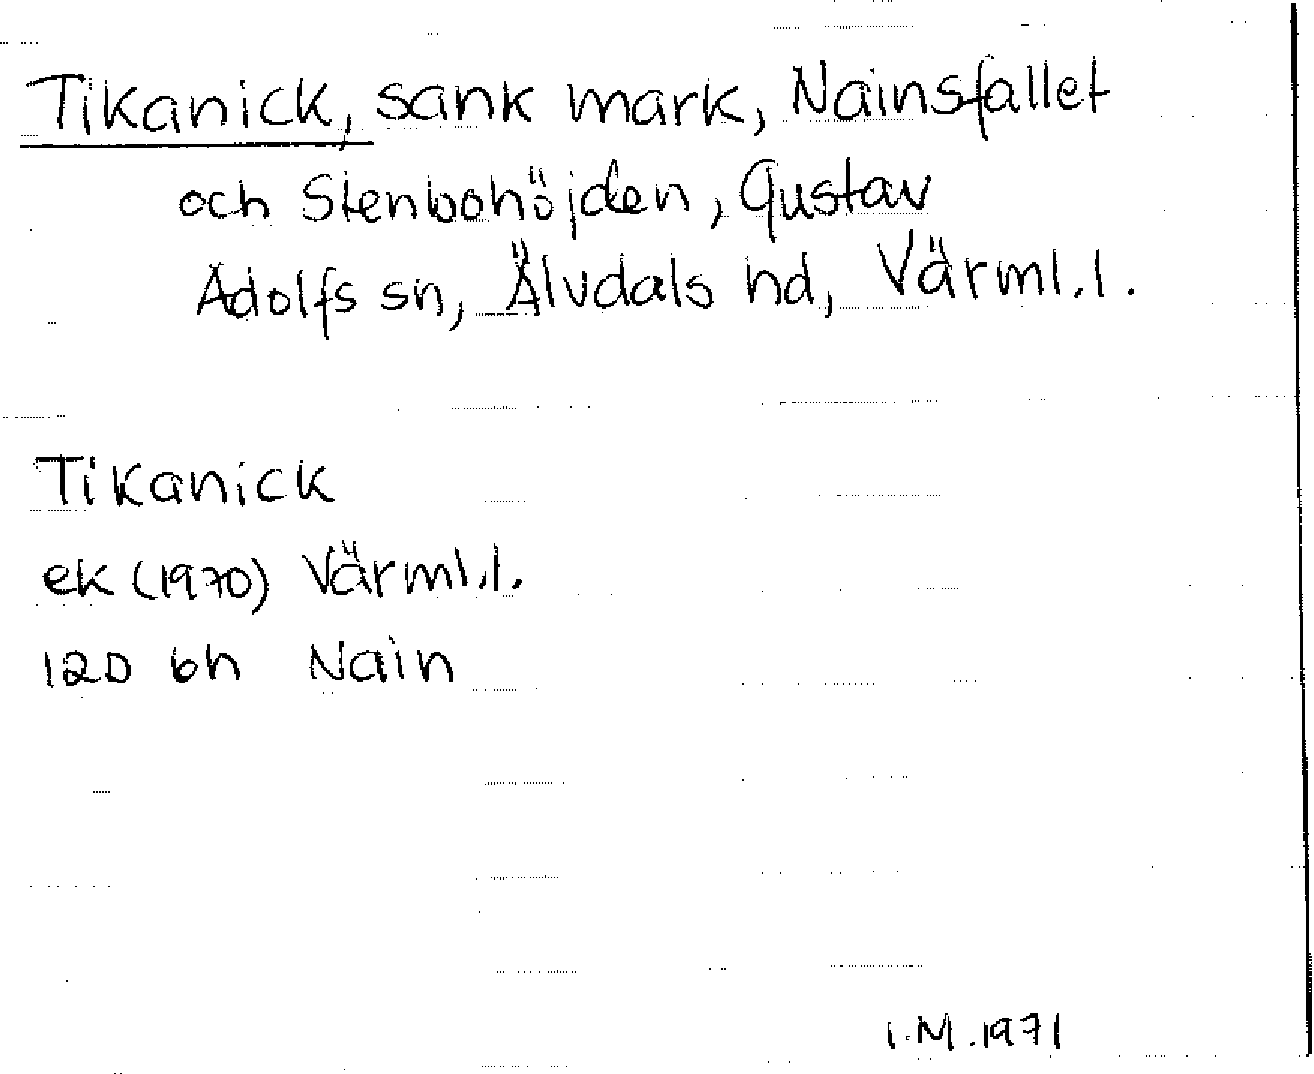 Tikanick, sank mark, Nainsfallet
och Stenbohöjden, Gustav
Adolfs sn, Älvdals hd, Värml.l.
Tikanick
ek (1970) Värml.l.
12D 6h Nain
I.M.1971